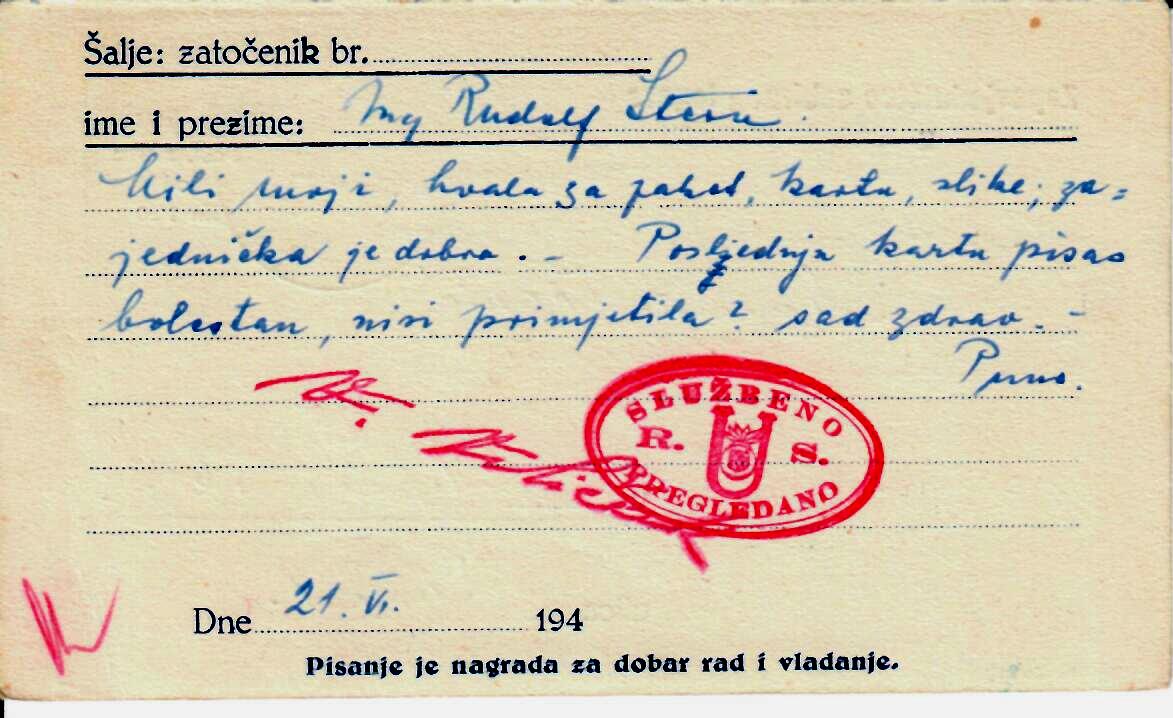 Šalje: zatočenik br.
ime i prezime: Rudolf Stern.
Mili moji, hvala za paket, kartu, slike; za=
jednička je dobra. - Posljednju kartu pisao
bolestan, nisi primjetila? sad zdrav. -
Puno.
SLUŽBENO
R. U S.
PREGLEDANO
Dne 21. VI. 194
Pisanje je nagrada za dobar rad i vladanje.